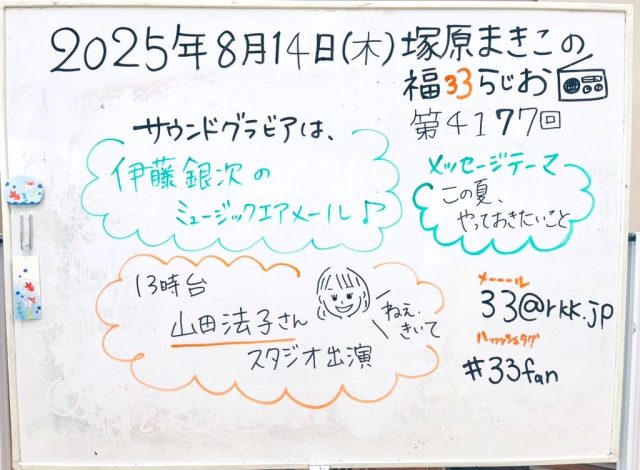 2025年8月14日(木)塚原まきこの
福33らじお
第4177回
サウンドグラビアは、
伊藤銀次の
ミュージックエアメール♪
メッセージテーマ
この夏、
やっておきたいこと
13時台
山田法子さん
スタジオ出演
ねえ、
きいて
メーーール
33@rkk.jp
ハッシュタグ
#33fan